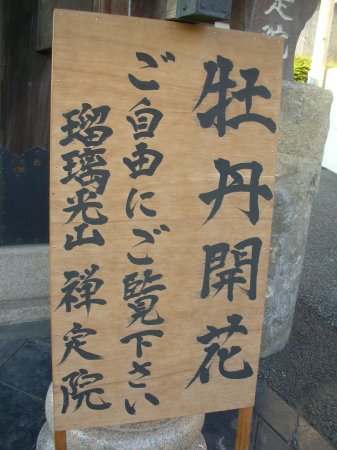 牡丹開花
ご自由にご覧下さい
瑠璃光山 禅定院